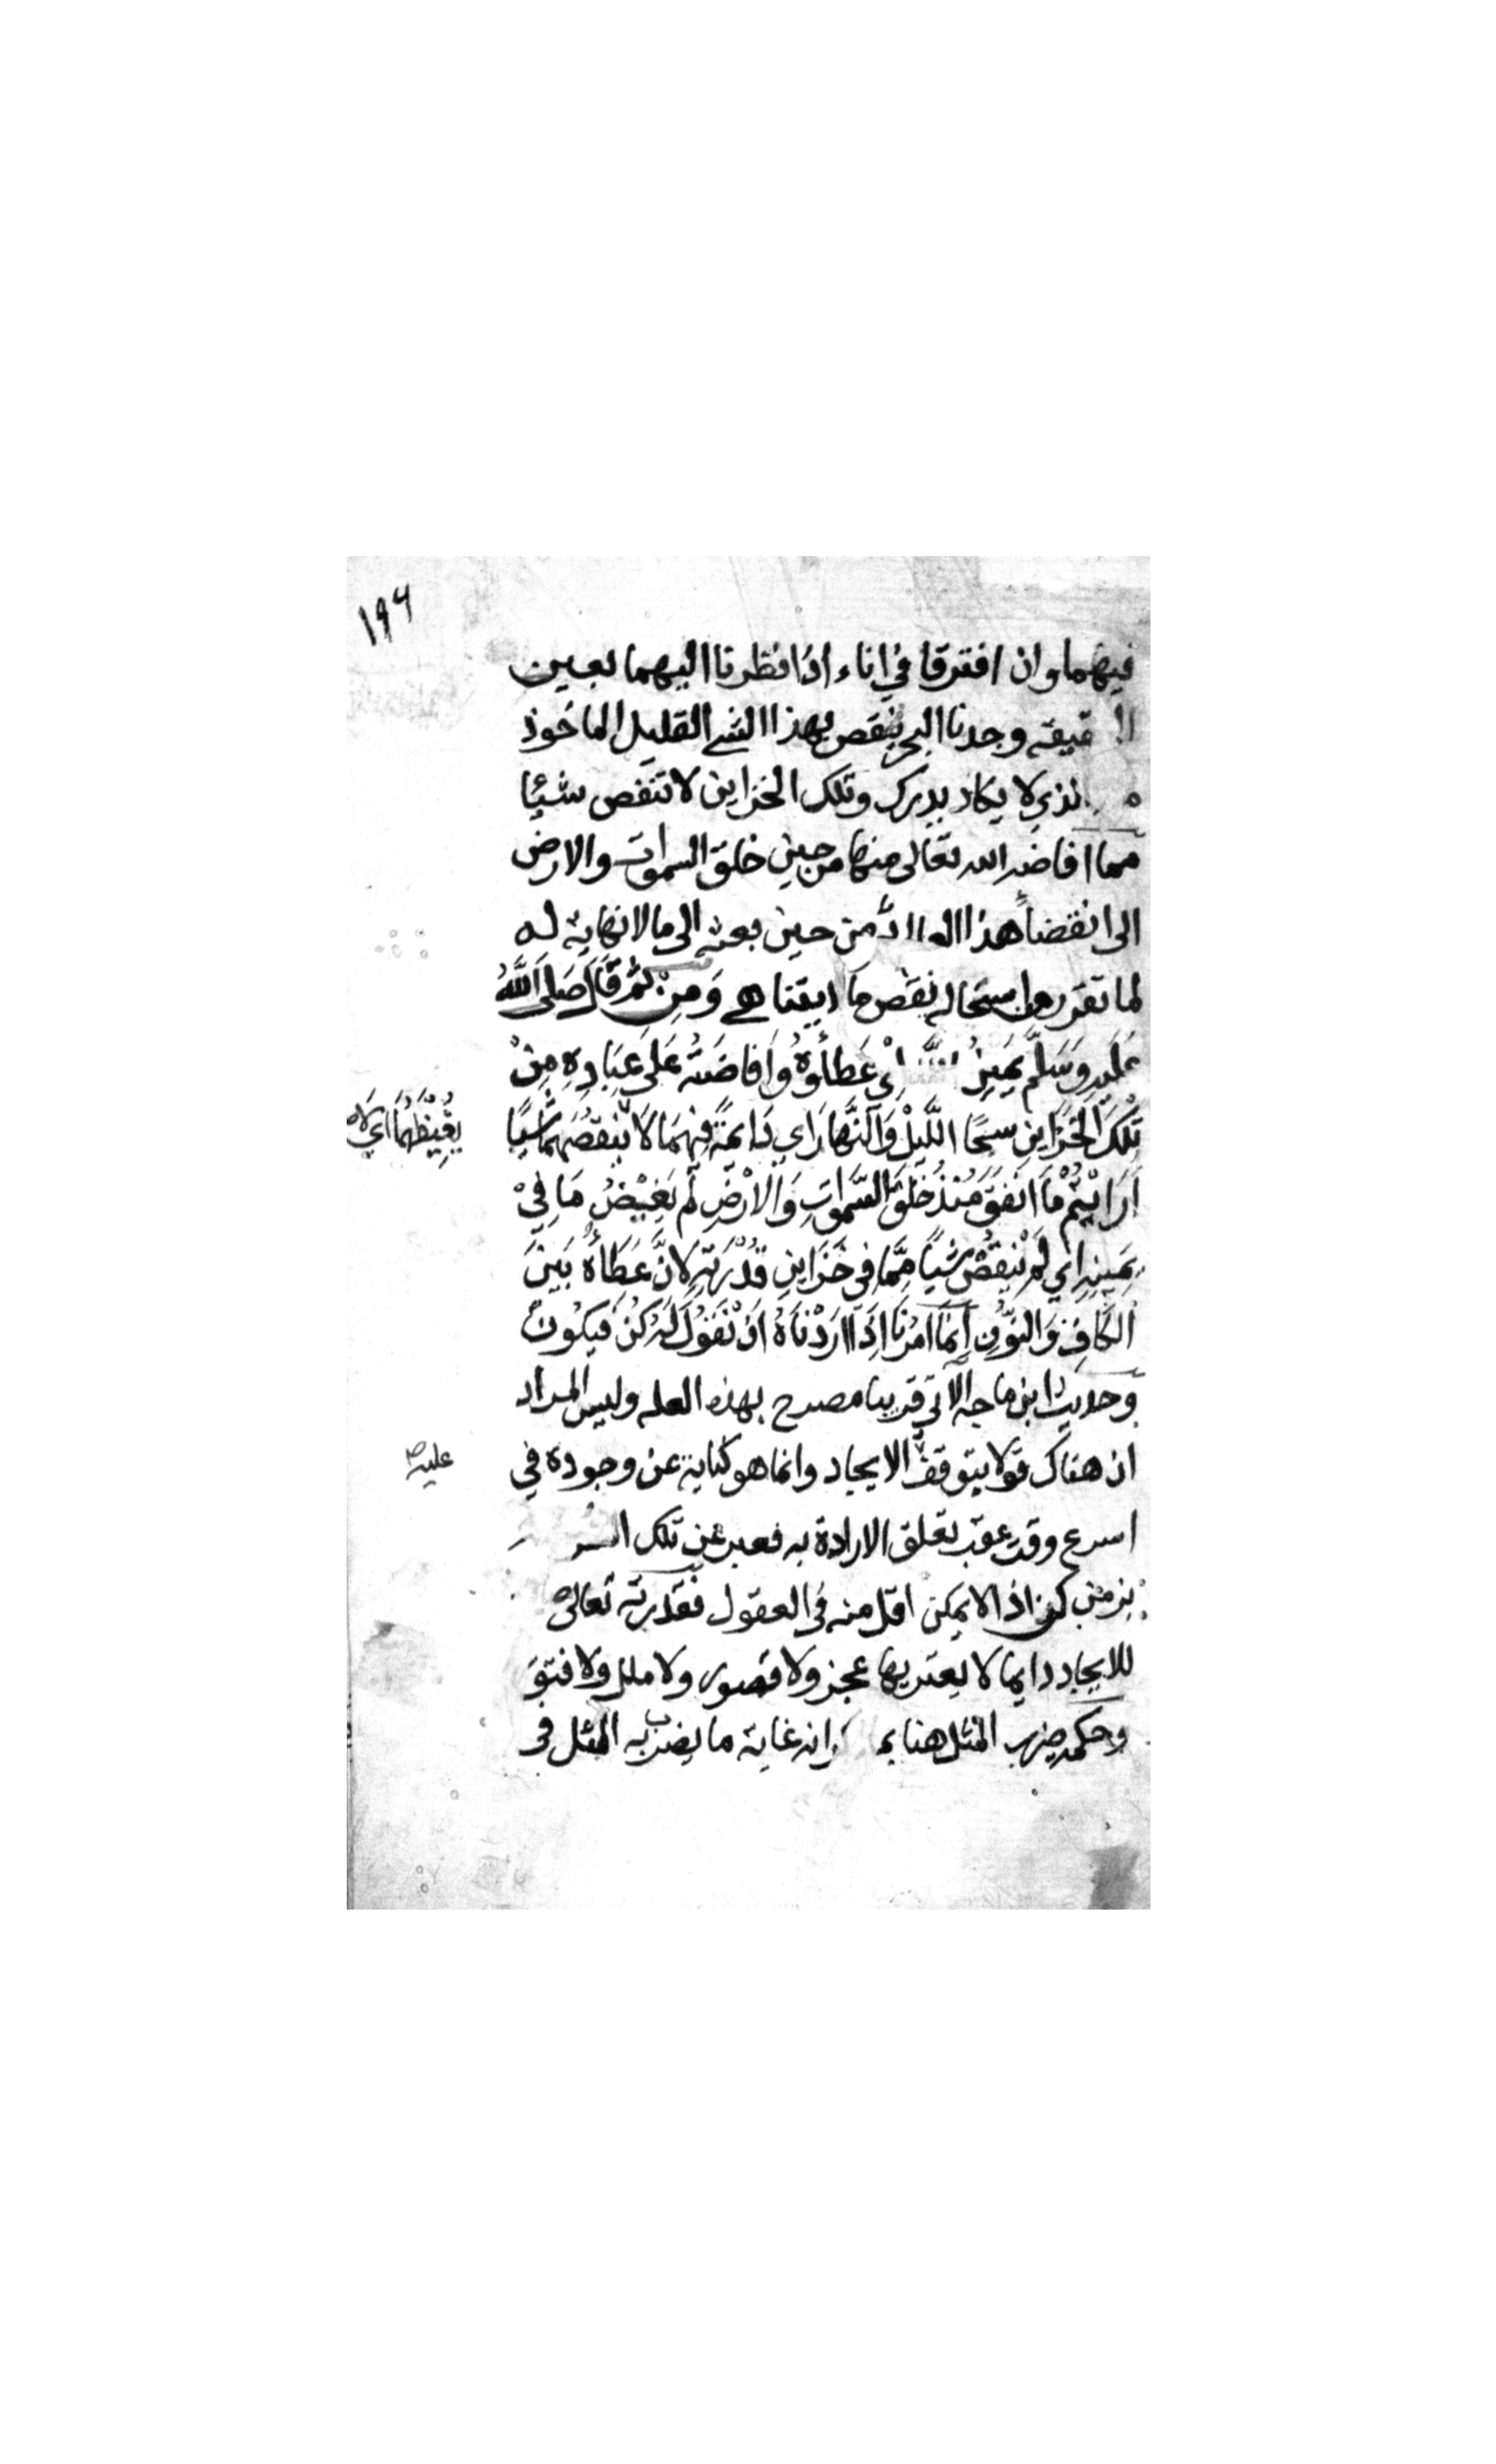 ١٩٦
فيهما وان افترقا في اناء اذا نظرنا اليهما بعين
وجدنا البحر ينقص بهذا الشي القليل الماخوذ
لا يكاد يدرك وتلك الخزاين لا تنقص شيئا
مما افاضه الله تعالى منها من حين خلق السموات والارض
الى انقضاء هذا من حين بعثه الى ما لانهاية له
لما تقرر من استحالة نقص ما
وَمِنْ ثَمَّ قَالَ صَلَى اللَّهُ
عَلَيهِ وَسَلَّم يَمِينُ اي عَطاؤهُ وافاضَتُه عَلَى عِبَادِهِ مِنْ
تِلْكَ الخَزَاين سحا اللَّيْلَ وَالنَّهارَ اي دَايمَةً فِيهمَا لَا يَنقصُهما شَيًا
يُغِيْظُهُمَا اي لا
اَرَايْتُمْ مَا انْفَقَ مُنْذُ خَلَقَ السَّمواتِ وَالْارْضِ لَم يَغِيْضُ مَا فِيْ
يَمِينِهِ اي لَمْ يَنْقُصْ شيًا مِمَّا فِى خَزَاينِ قُدْرَتِهِ لِانَّ عَطَاءُهُ بَيْنَ
الكَافِ وَالنُّونِ اِنمَا امْرُنَا اِذَا ارَدْنَاهُ انْ نَقُولَ لَهُ كُنْ فَيكُونُ
وحديث ابن ماجه الآتي قريبا مصرح بهذه العلة وليس المراد
ان هناك قولا يتوقف الايجاد وانما هو كناية عن وجوده في
عليه صح
اسرع وقت عقب تعلق الارادة به فعبر عن تلك
بزمن كن اذ لا يمكن اقل منه في العقول فقدرته تعالى
للايجاد دايما لا يعتريها عجز ولا قصور ولا ملل ولا فتور
وحكمة ضرب المثل هنا انه غاية ما يضرب به المثل في